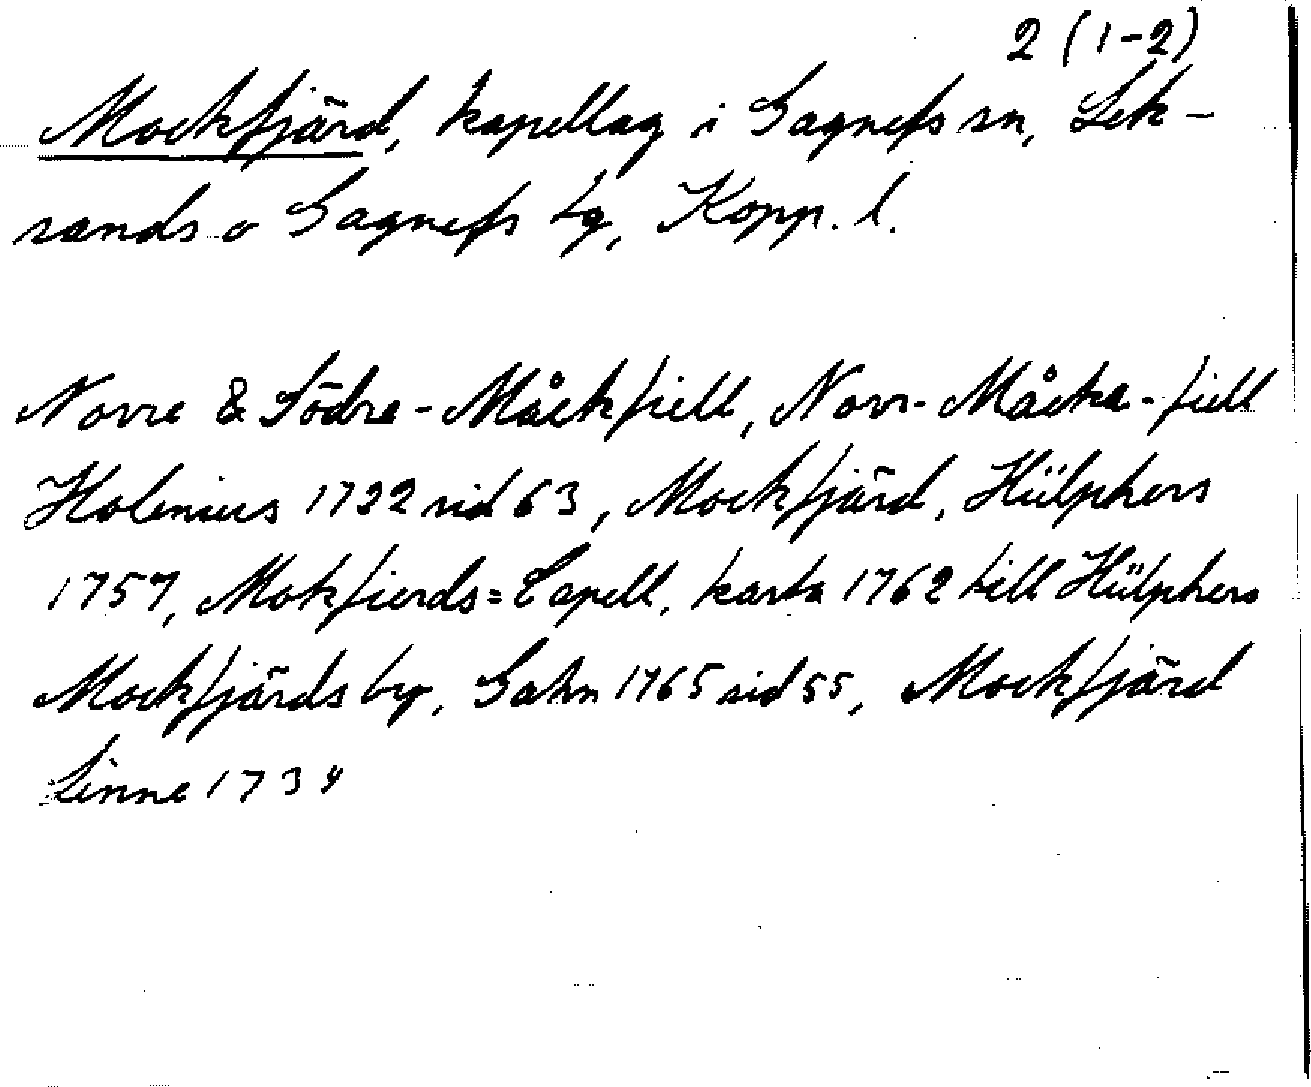 2 (1-2)
Mockfjärd, kapellag i Gagnefs sn, Lek-
sands o Gagnefs tg, Kopp. l.
Norre & Södre-Måckfiell, Norr-Måcka-fiell
Holenius 1722 sid 63, Mockfjärd, Hülphers
1757, Mokfierds=Capell, karta 1762 till Hülphers
Mockfjärds by, Sahn 1765 sid 55, Mockfjärd
Linne 1734